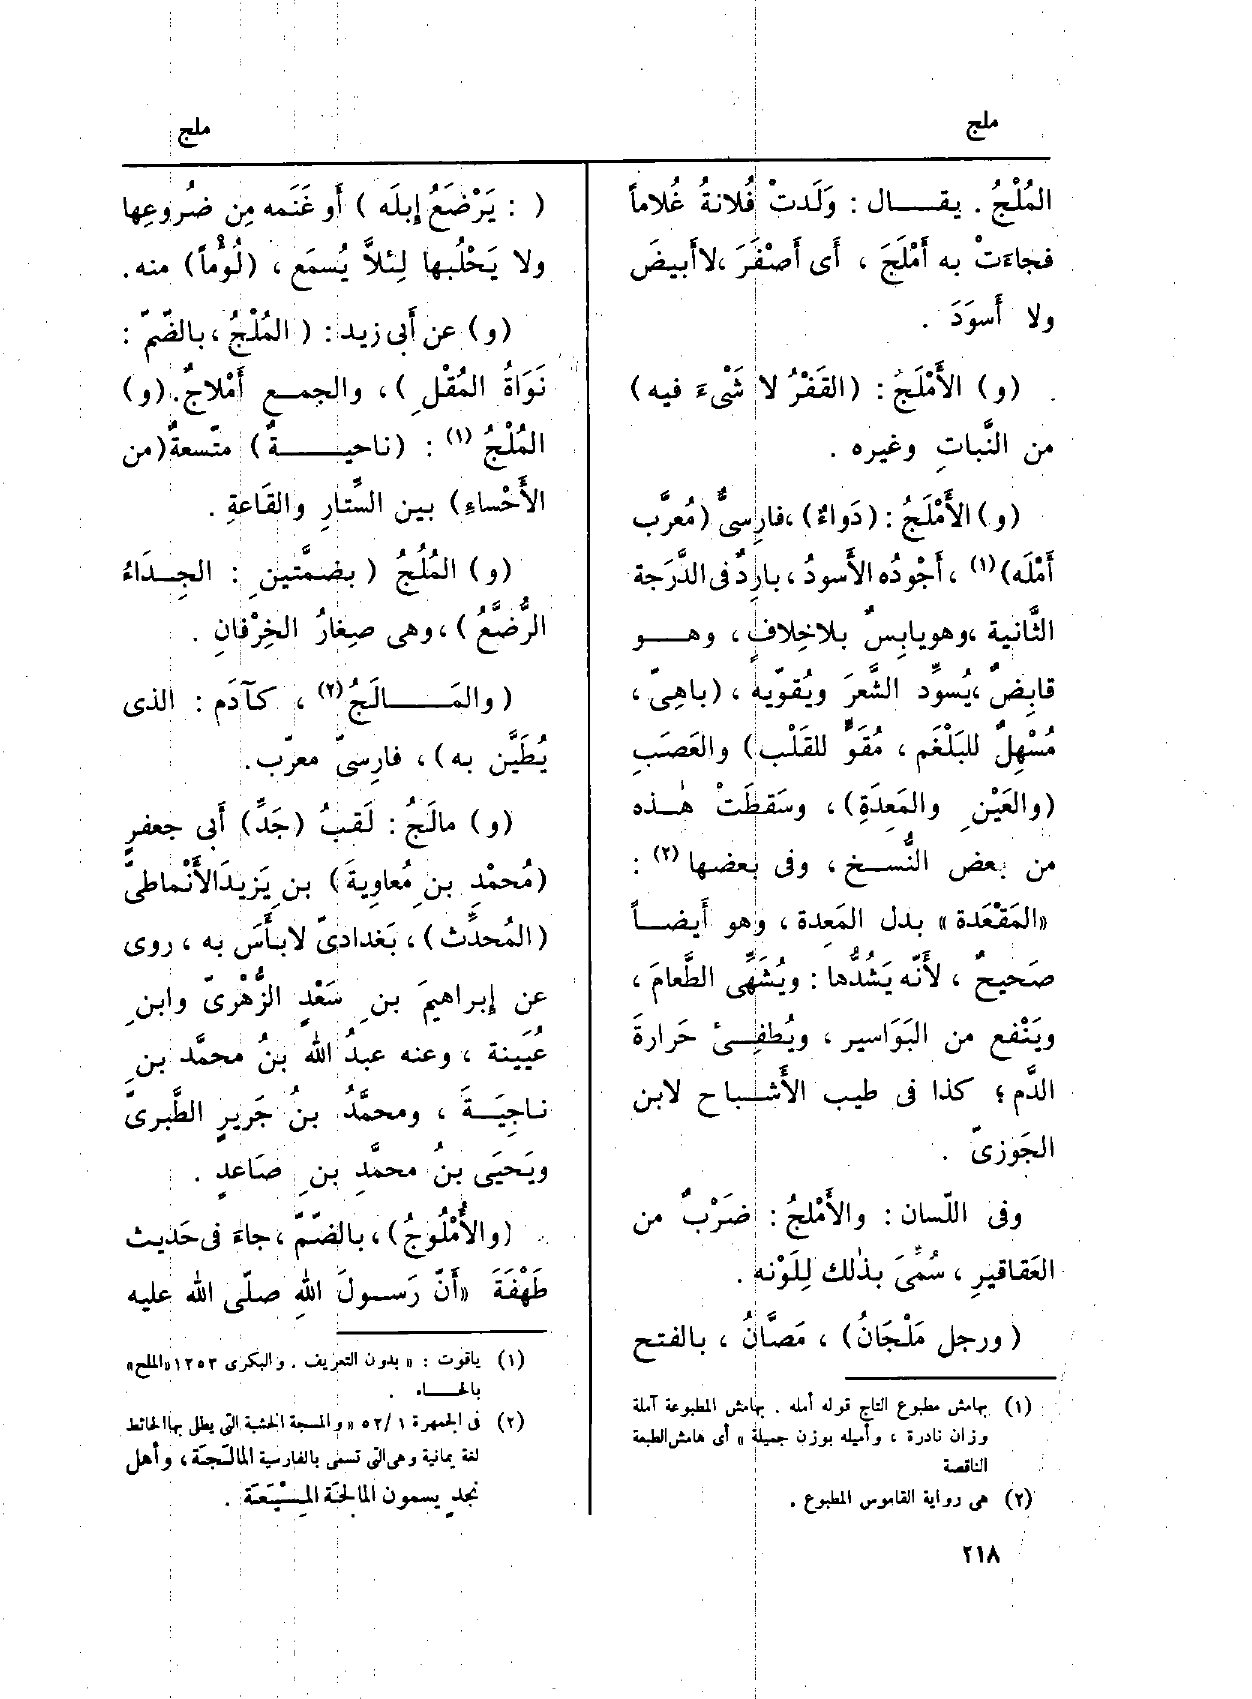 ملج
ملج
المُلْجُ . يقـــال : وَلَدتْ فُلانةُ غُلاماً
فجاءَتْ به أَمْلَجَ ، أَى أَصْفَرَ ، لا أَبيضَ
ولا أَسوَدَ .
(و) الأَمْلَجُ : (القَفْرُ لا شَىْءَ فيه)
من النَّباتِ وغيرِه .
(و) الأَمْلَجُ : (دَواءٌ) ، فارِسىٌّ (مُعرَّب
أَمْلَه) (١) ، أَجْوُدُه الأَسودُ ، بارِدٌ فى الدَّرَجة
الثَّانية ، وهو يابِسٌ بلا خِلافٍ ، وهـــو
قابِضٌ ، يُسوِّد الشَّعرَ ويُقوّيه ، (باهِىّ ،
مُسْهِلٌ للبَلْغَم ، مُقَوٍّ للقَلْب) والعَصَبِ
(والعَيْنِ والمَعِدَةِ) ، وسَقطَتْ هٰـذه
من بعض النُّســخ ، وفى بعضها (٢) :
«المَقْعَدة» بدل المَعِدة ، وهو أَيضــاً
صَحيحٌ ، لأَنّه يَشُدُّها : ويُشَهِّى الطَّعامَ ،
ويَنْفع من البَوَاسير ، ويُطفِــئُ حَرارةَ
الدَّم ؛ كذا فى طيب الأَشــباح لابن
الجَوزىّ .
وفى اللّسان : والأَمْلجُ : ضَرْبٌ من
العَقاقيرِ ، سُمِّىَ بذٰلك لِلَوْنه .
(ورجل مَلْجَانُ) ، مَصَّانُ ، بالفتح
(١) بهامش مطبوع التاج قوله أمله . بهامش المطبوعة آملة
وزان نادرة ، وأميله بوزن جميلة » أى هامش الطبعة
الناقصة
(٢) هى رواية القاموس المطبوع .
( : يَرْضَعُ إِبلَه ) أَو غَنَمه مِن ضُروعِها
ولا يَحْلُبها لِئلاَّ يُسمَع ، (لُؤْماً) منه .
(و) عن أَبى زيد : ( المُلْجُ ، بالضّمّ :
نَوَاةُ المُقْلِ ) ، والجمـع أَمْلاجٌ . (و)
المُلْجُ (١) : (ناحيـــةٌ) متّسعةٌ (من
الأَحْساءِ) بين السِّتارِ والقَاعةِ .
(و) المُلُجُ ( بضمَّتينِ : الجِـدَاءُ
الرُّضَّعُ ) ، وهى صِغارُ الخِرْفانِ .
( والمَـــالَجُ (٢) ، كآدَم : الذى
يُطَيَّن به ) ، فارِسىّ معرّب .
(و) مالَجُ : لَقبُ (جَدِّ) أَبى جعفرٍ
(مُحمْدِ بنِ مُعاوِيةَ) بنِ يَزِيدَ الأَنْماطىّ
(المُحدِّث) ، بَغدادىّ لا بأْسَ به ، روى
عن إِبراهيمَ بنِ سَعْدٍ الزُّهْرىّ وابنِ
عُيَينة ، وعنه عبدُ اللّٰه بنُ محمَّد بنِ
ناجِيَــةَ ، ومحمَّدُ بنُ جَريرٍ الطَّبرىّ
ويَحيَى بنُ محمَّدِ بنِ صَاعدٍ .
(والأُمْلُوجُ) ، بالضّمّ ، جاءَ فى حَديث
طَهْفَةَ «أَنّ رَســولَ اللّٰهِ صلّى اللّٰه عليه
(١) ياقوت : «بدون التعريف . والبكرى ١٢٥٣ «الملح»
بالحــاء .
(٢) فى الجمهرة ٥٢/١ « والمسجة الخشبة التى يطل بها الحائط
لغة يمانية وهى التى تسمى بالفارسية المالَجَة ، وأهل
نجد يسمون المالجَة المِسْيَعَة .
٢١٨